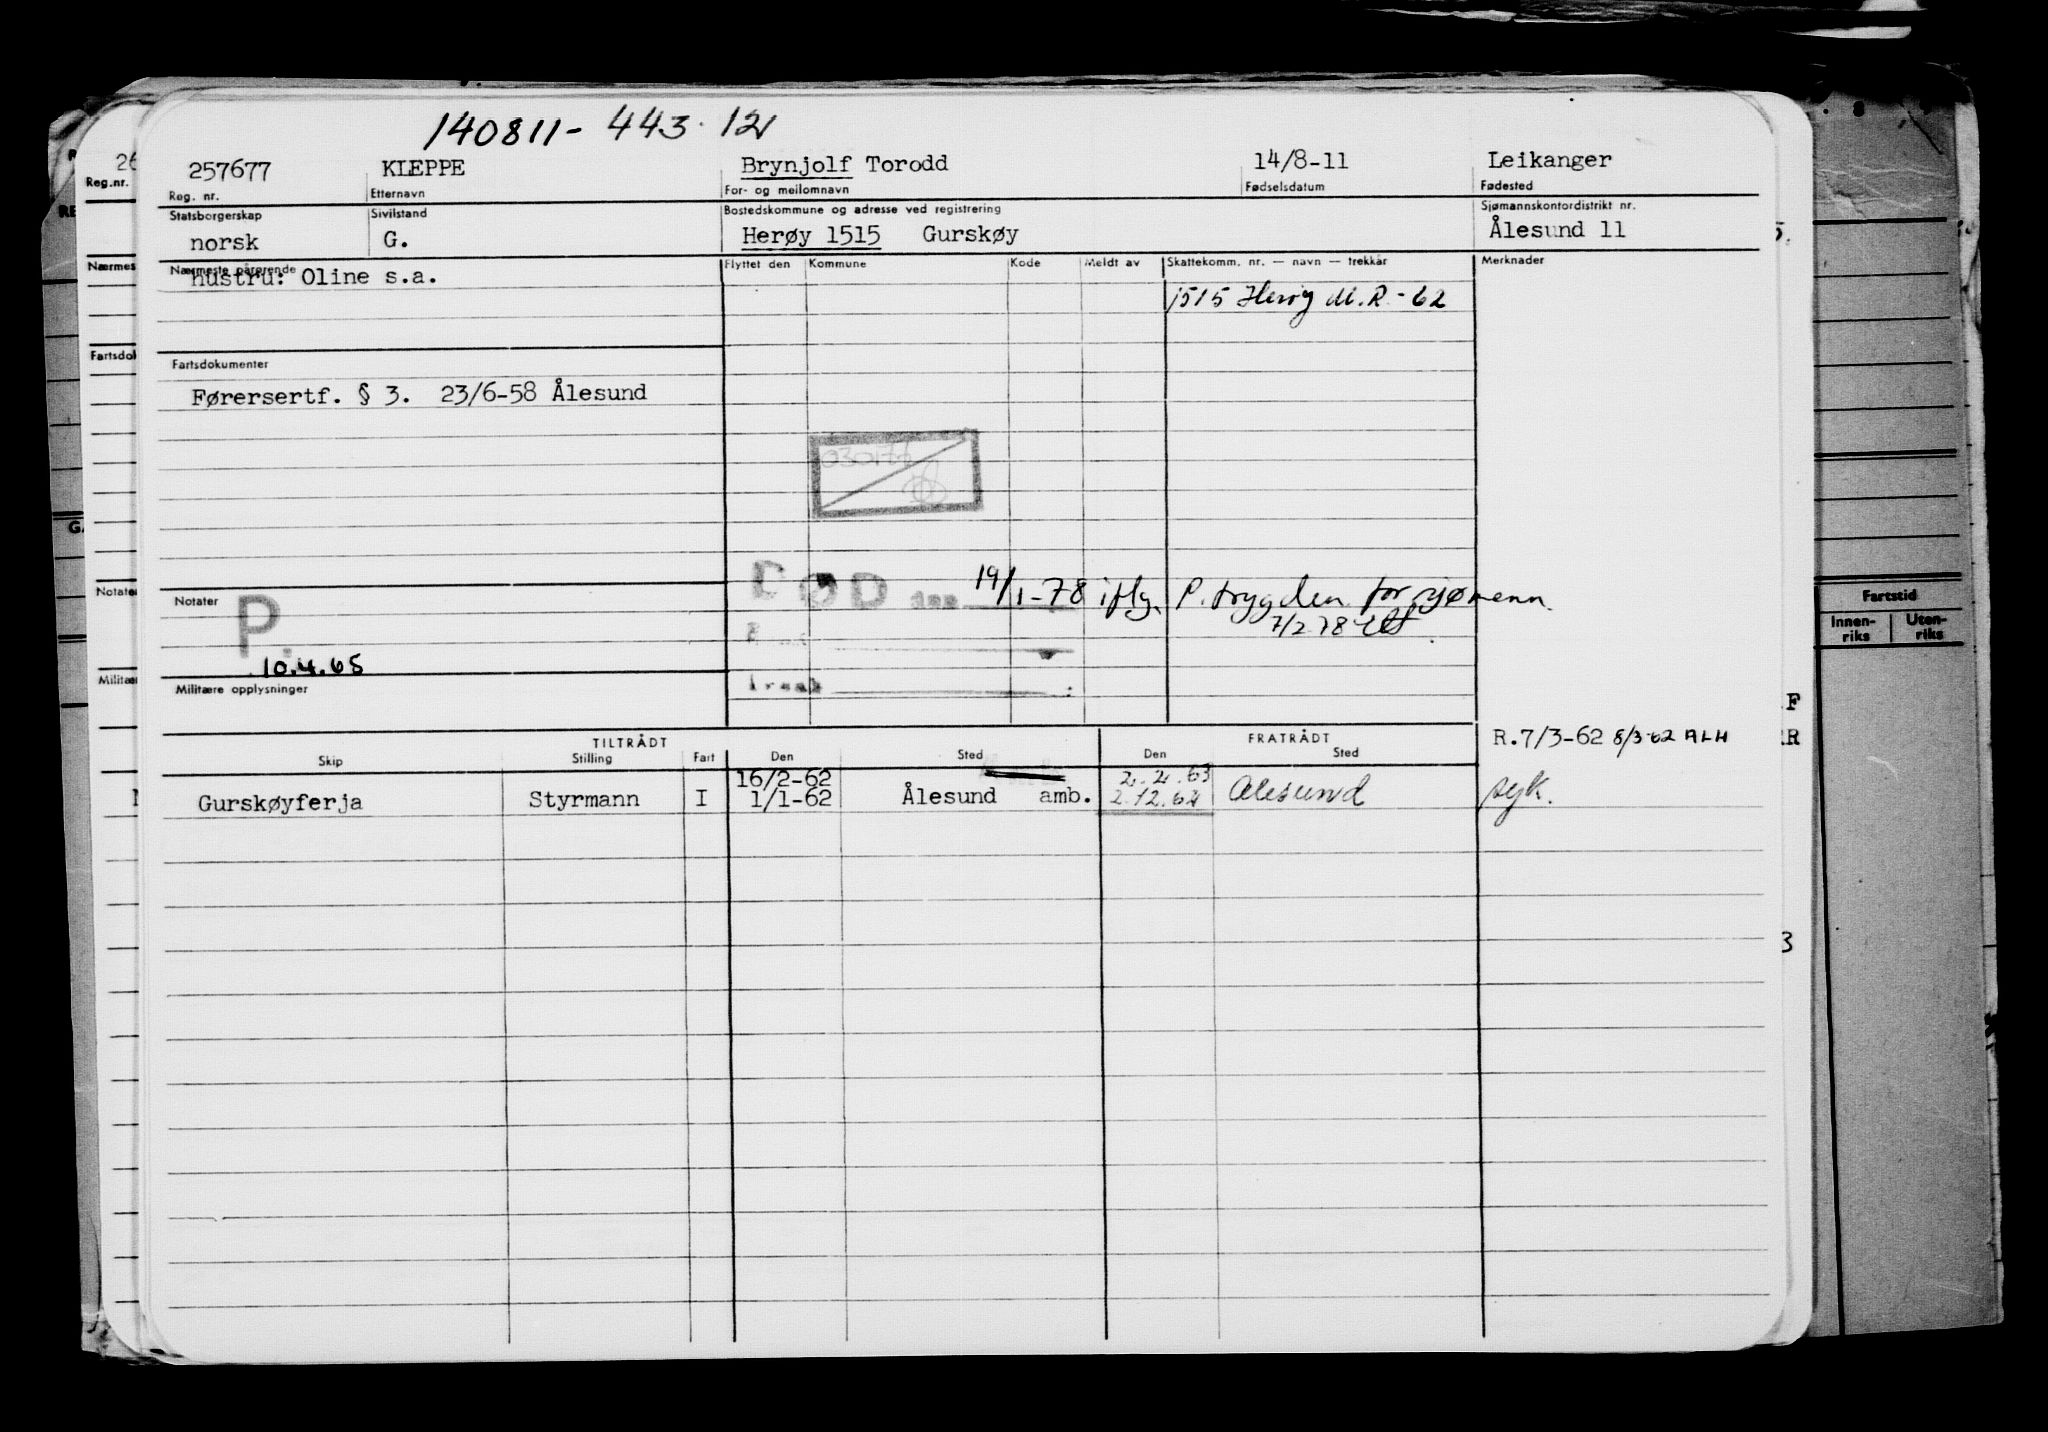 140811- 443.12
257677 KLEPPE Brynjolf Torodd 14/8-11 Leikanger
Reg. nr. Etternavn For- og mellomnavn Fødselsdatum Fødested
Statsborgerskap Sivilstand Bostedskommune og adresse ved registrering Sjømannskontordistrikt nr.
norsk G. Herøy 1515 Gurskøy Ålesund 11
Nærmeste pårørende Flyttet den Kommune Kode Meldt av Skattekomm. nr. — navn — trekkår Merknader
hustru: Oline s.a.
1515 Herøy M.R.-62
Fartsdokumenter
Førersertf. § 3. 23/6-58 Ålesund
030177
DØD den 19/1-78 iflg. P.trygden for sjømenn.
Notater
7/2 78
P.
10.4.65
Militære opplysninger
TILTRÅDT FRATRÅDT R.7/3-62 8/3-62 ALH
Skip Stilling Fart Den Sted Den Sted
16/2-62 2.2.63
Gurskøyferja Styrmann I 1/1-62 Ålesund amb. 2.12.62 Ålesund syk.
Reg.nr. 26
Nærmes
Fartsdok
Notate
Militær
Fartstid
Innen-riks Uten-riks